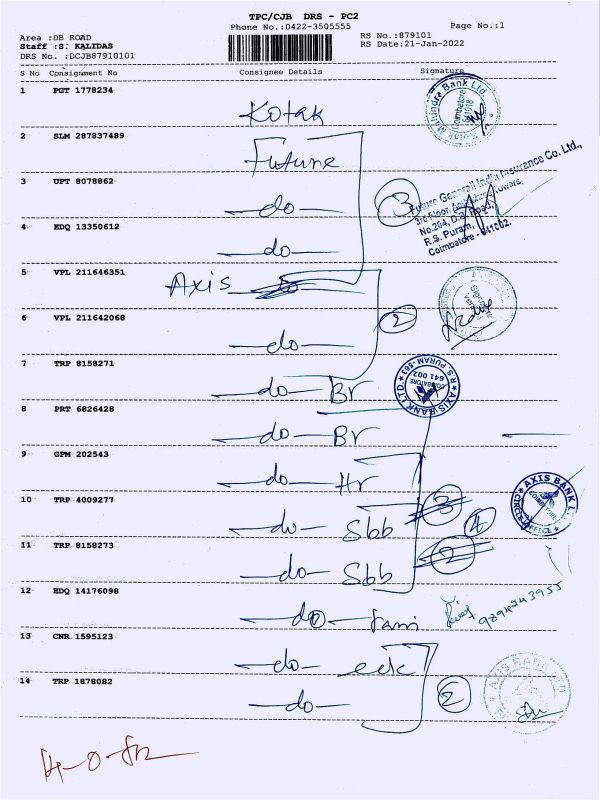 TPC/CJB DRS - PC2
Phone No.:0422-3505555
Page No.:1
Area :DB ROAD
Staff :S. KALIDAS
DRS No. :DCJB87910101
RS No.:879101
RS Date:21-Jan-2022
S No Consignment No Consignee Details Signature
1 PGT 1778234
Kotak
Mahindra Bank Ltd.
Coimbatore
2 SLM 287837489
Future
3 UPT 8078862
-do-
3
Future Generali India Insurance Co. Ltd.,
3rd Floor, Towers,
No.204, D.B. Road,
R.S. Puram,
Coimbatore - 641002.
4 EDQ 13350612
-do-
5 VPL 211646351
Axis
6 VPL 211642068
-do-
2
7 TRP 8158271
-do- Br
AXIS BANK LTD
R.S. PURAM-563
COIMBATORE
641 002
8 PRT 6826428
-do- Br
9 GPM 202543
-do- Hr
10 TRP 4009277
-do- Sbb
3
4
AXIS BANK L
CIRCLE OFFICE
11 TRP 8158273
-do- Sbb
2
12 EDQ 14176098
-do-
9894243955
13 CNR 1595123
-do- edc
14 TRP 1878082
-do-
2
AXIS BANK LTD